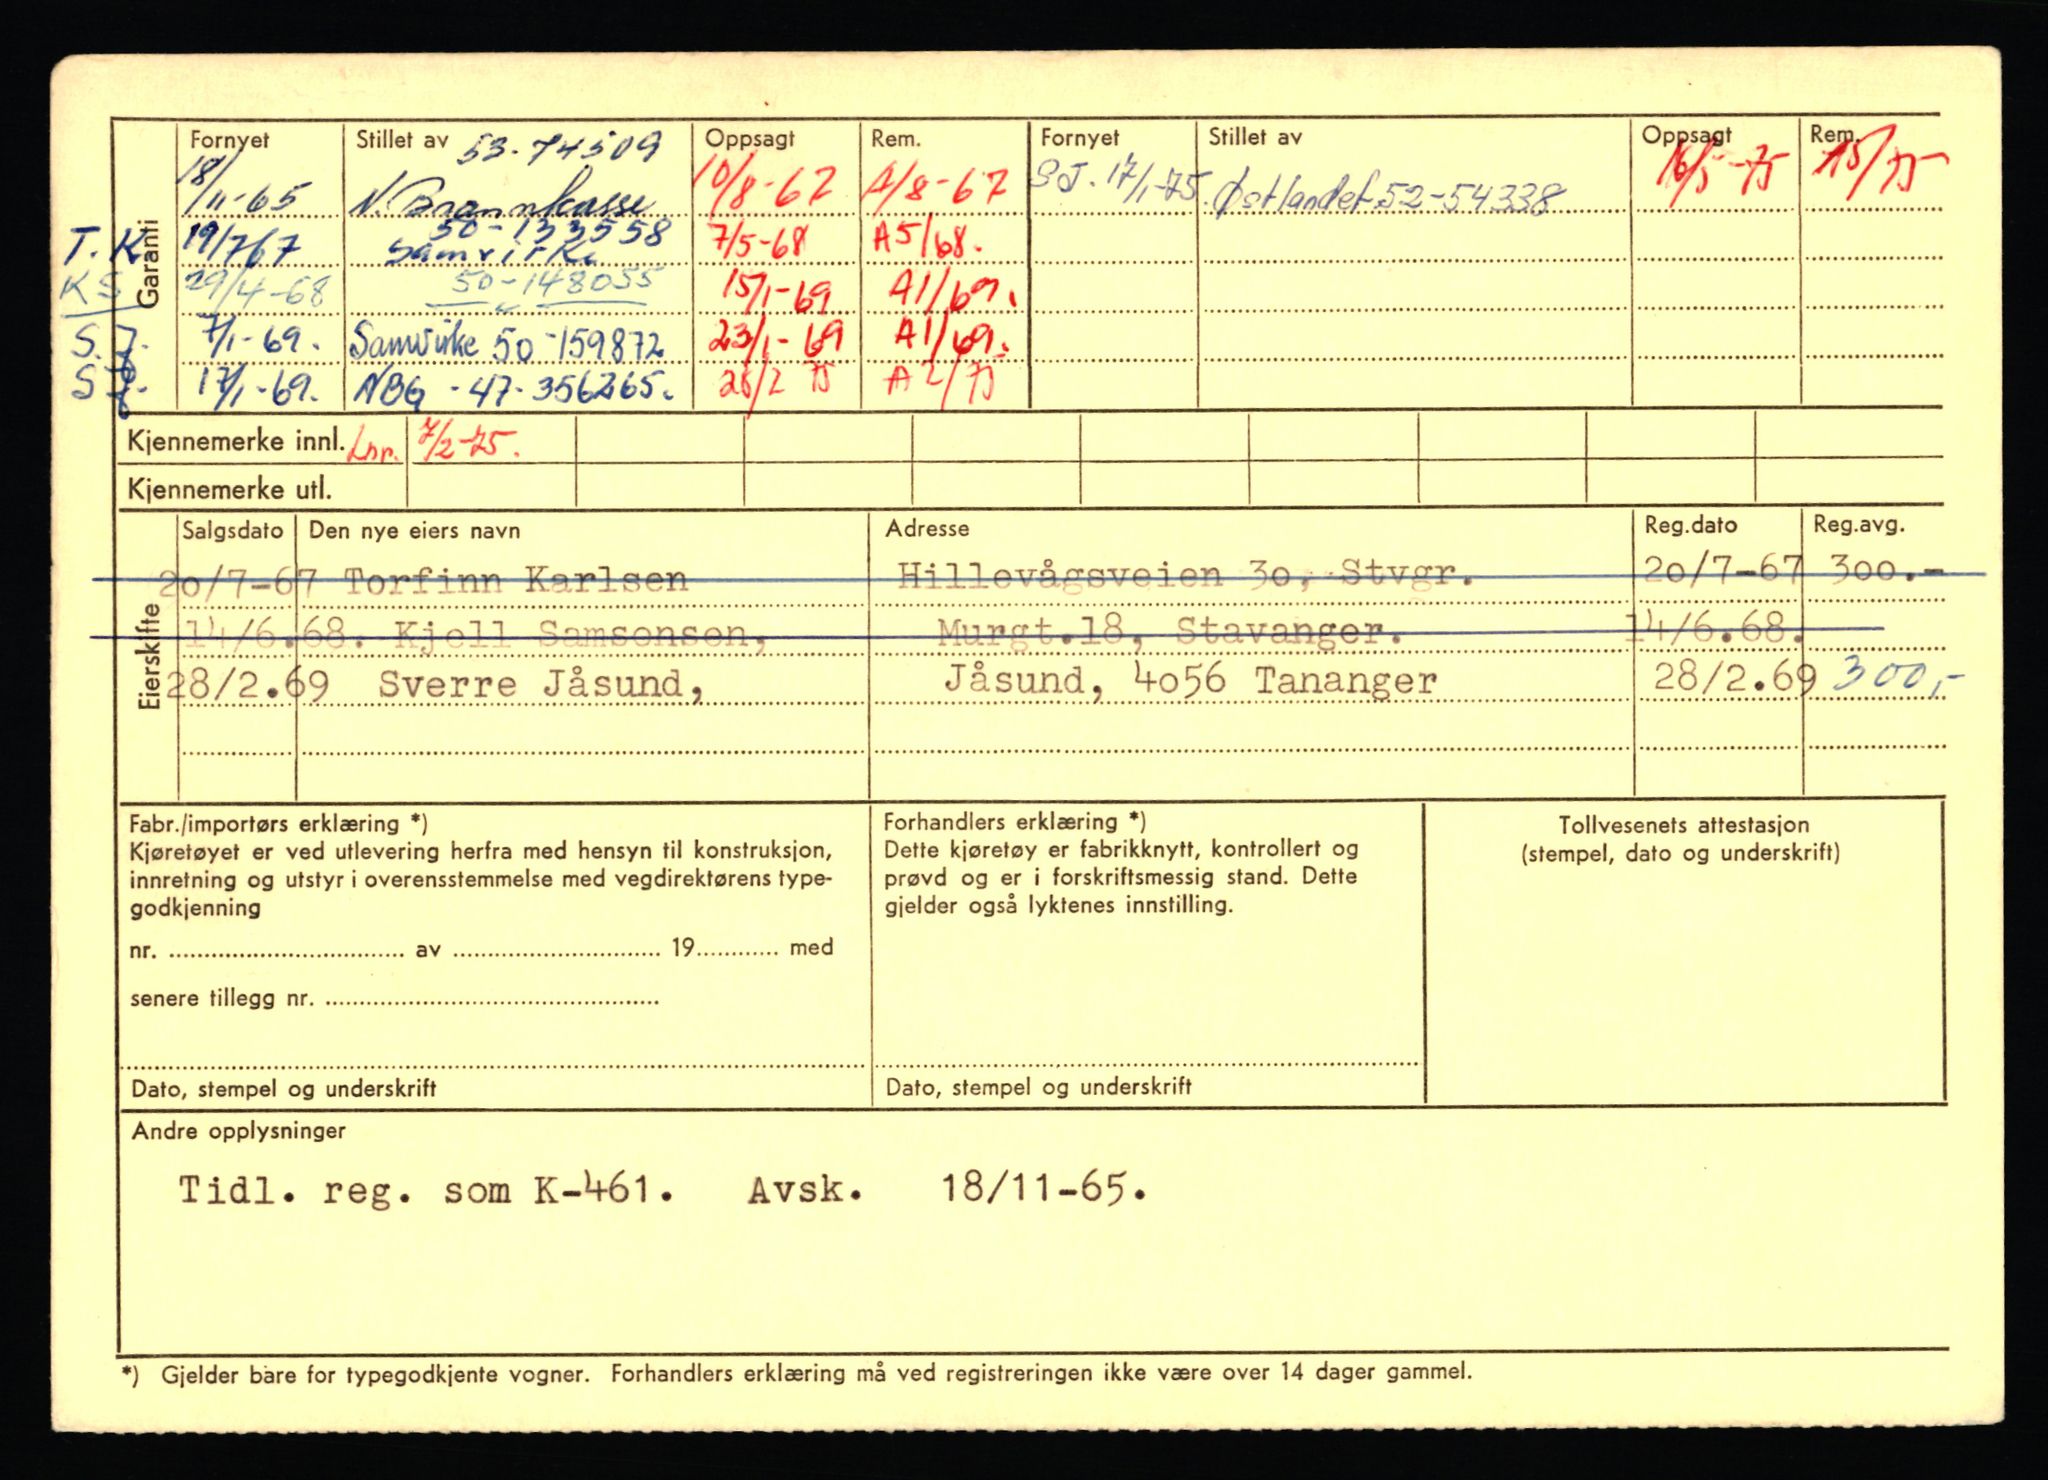 Garanti
Fornyet Stillet av Oppsagt Rem. Fornyet Stillet av Oppsagt Rem.
53-74509
18/11-65 N. Brannkasse 10/8-67 A/8-67 S J. 17/1-75. Østlandet 52-54338 16/5-75 15/75
50-133558
T. K. 19/7 67 Samvirke 7/5-68 A5/68.
KS 29/4-68 50-148055 15/1-69 A1/69.
S. J. 7/1-69. Samvirke 50-159872 23/1-69 A1/69.
S J. 17/1-69. NBG -47-356265. 25/2 75 A 2/75
Kjennemerke innl. Lnr. 7/2-75.
Kjennemerke utl.
Eierskifte
Salgsdato Den nye eiers navn Adresse Reg.dato Reg.avg.
20/7-67 Torfinn Karlsen Hillevågsveien 30, Stvgr. 20/7-67 300.-
14/6.68. Kjell Samsonsen, Murgt.18, Stavanger. 14/6.68.
28/2.69 Sverre Jåsund, Jåsund, 4056 Tananger 28/2.69 300,-
Fabr./importørs erklæring *)
Kjøretøyet er ved utlevering herfra med hensyn til konstruksjon,
innretning og utstyr i overensstemmelse med vegdirektørens type-
godkjenning
nr. ................................... av ............................... 19............ med
senere tillegg nr. .................................................
Dato, stempel og underskrift
Forhandlers erklæring *)
Dette kjøretøy er fabrikknytt, kontrollert og
prøvd og er i forskriftsmessig stand. Dette
gjelder også lyktenes innstilling.
Dato, stempel og underskrift
Tollvesenets attestasjon
(stempel, dato og underskrift)
Andre opplysninger
Tidl. reg. som K-461. Avsk. 18/11-65.
*) Gjelder bare for typegodkjente vogner. Forhandlers erklæring må ved registreringen ikke være over 14 dager gammel.